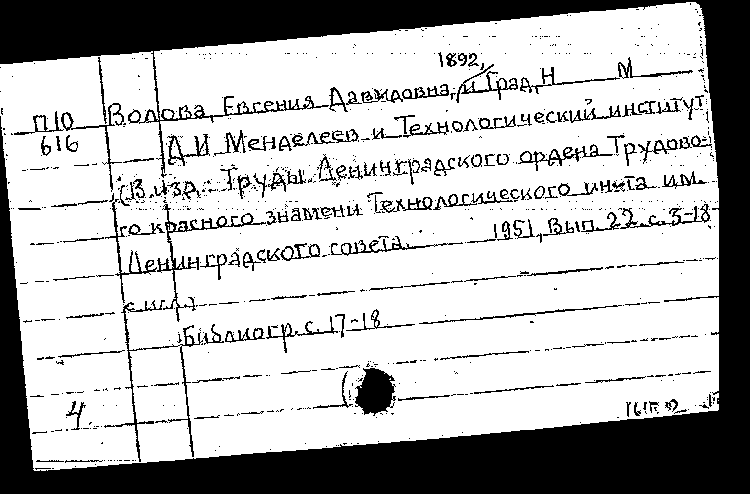 1892,
П10 Волова, Евгения Давидовна, и Град, Н М
616 Д. И. Менделеев и Технологический институт
(В изд.: Труды Ленинградского ордена Трудово-
го красного знамени Технологического ин-та им.
Ленинградского совета. 1951, Вып. 22. с. 3-18
с илл.)
Библиогр. с. 17-18
4